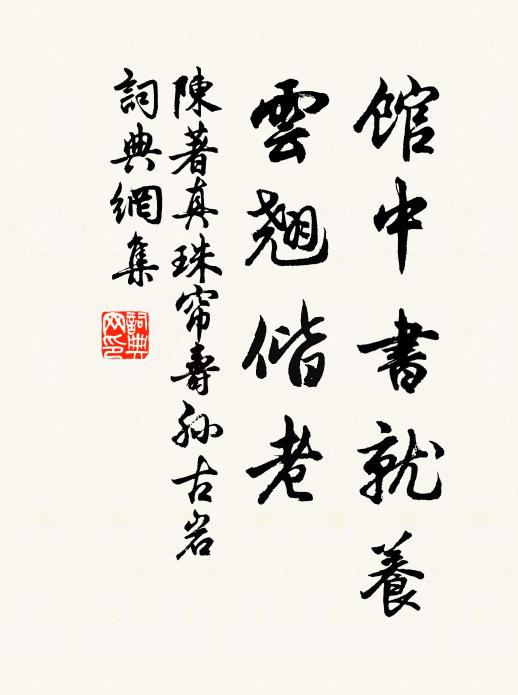 館中書就養
雲翹偕老
陳著真珠帘壽孙古岩
詞典網集
詞典網印